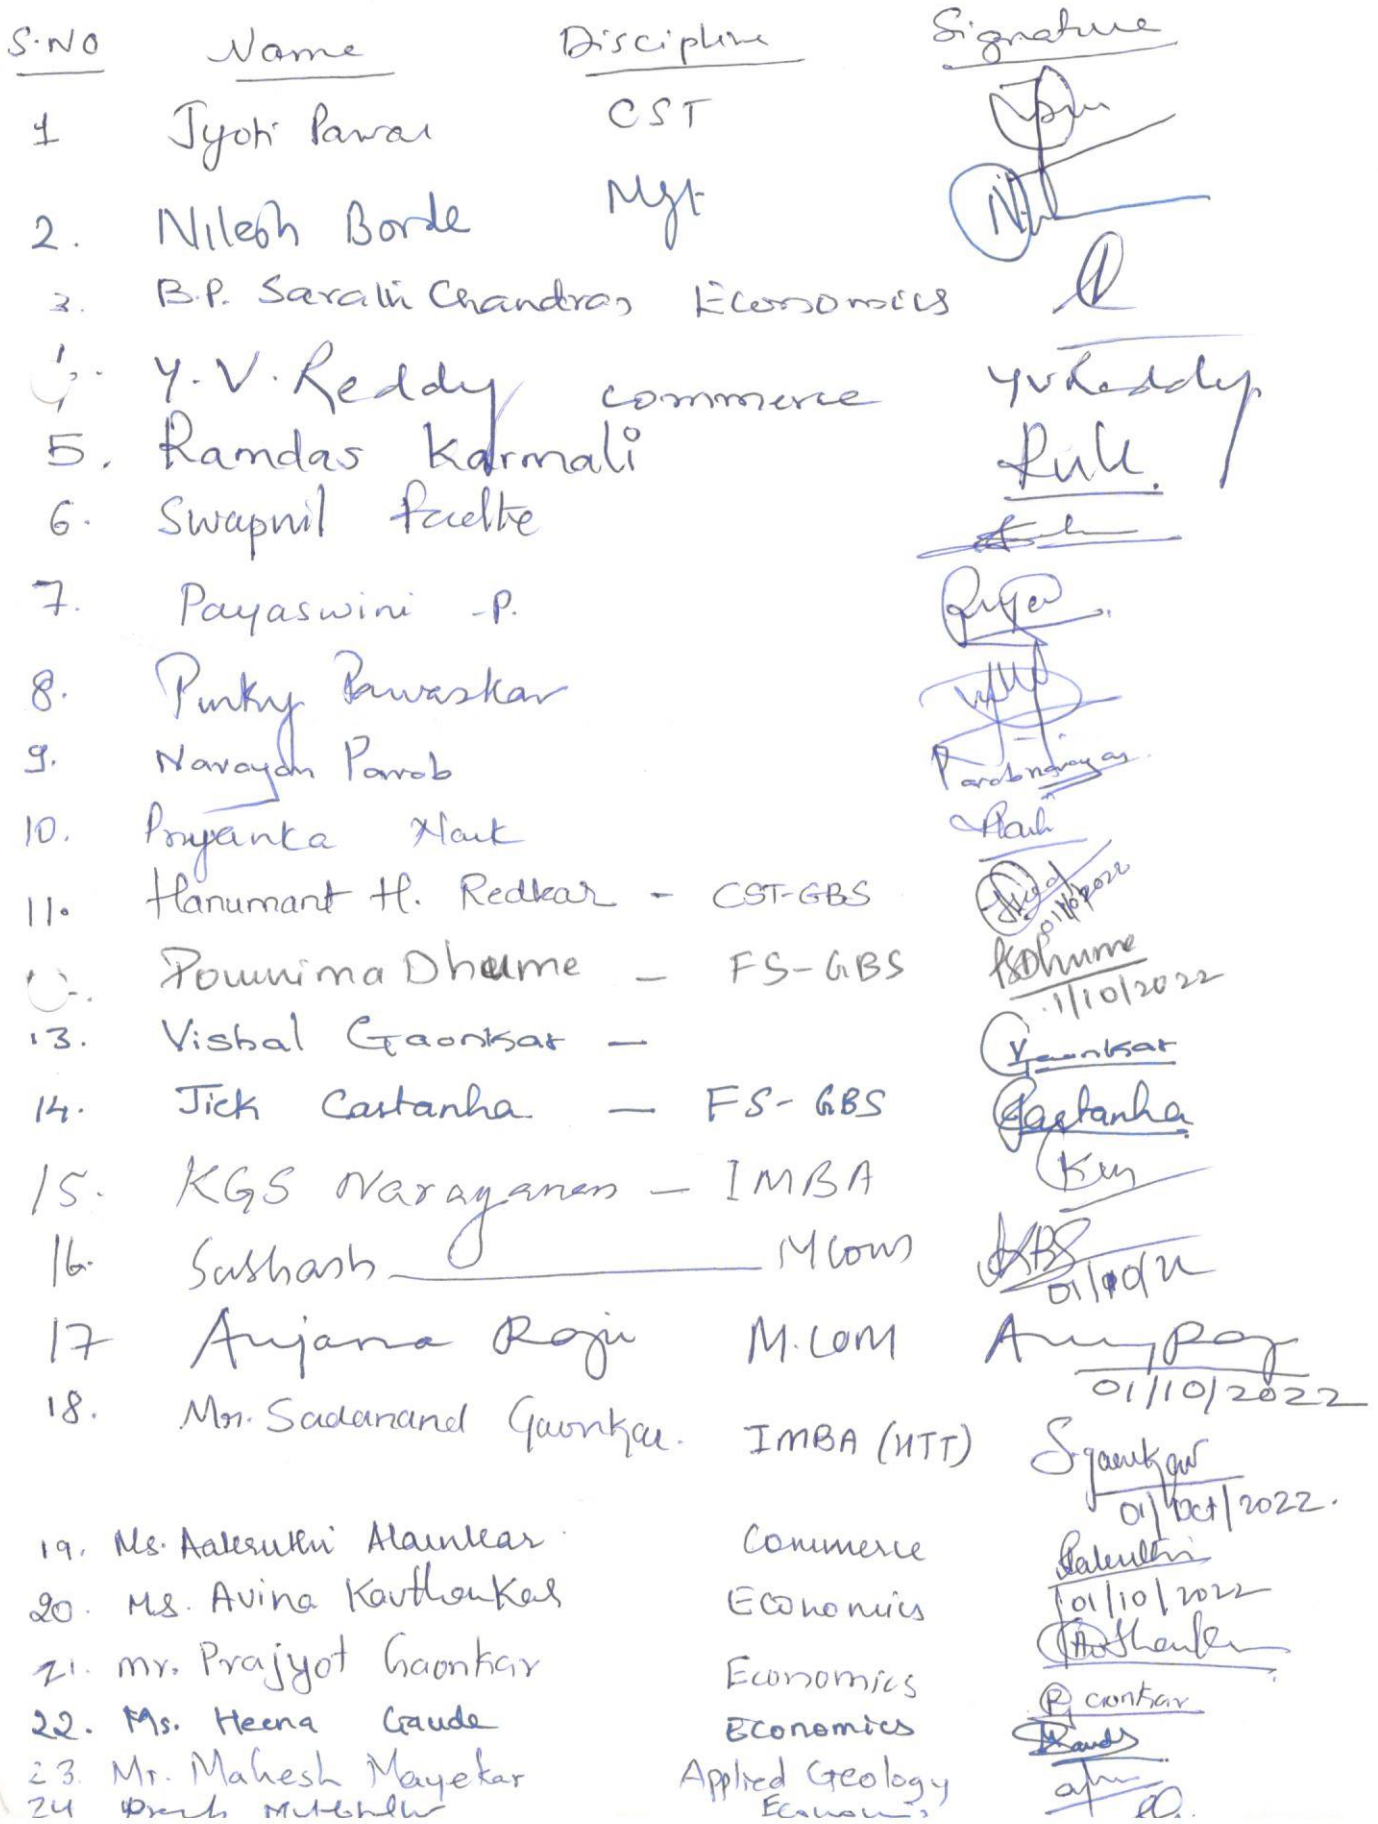 S.No Name Discipline Signature
1 Jyoti Pawar CST
2. Nilesh Borde Mgt
3. B.P. Sarath Chandran Economics
4. Y.V. Reddy commerce YVReddy
5. Ramdas Karmali
6. Swapnil
7. Payaswini P.
8. Pinky Pawaskar
9. Narayan Parab Parabnarayan
10. Priyanka Naik Naik
11. Hanumant H. Redkar - CST-GBS 01/10/2022
Pournima Dhume - FS-GBS PSDhume
1/10/2022
13. Vishal Gaonkar - VGaonkar
14. Jick Castanha - FS-GBS JCastanha
15. KGS Narayanan - IMBA
16. Subhash MCom KBS
01/10/22
17 Anjana Raju M.COM
01/10/2022
18. Mr. Sadanand Gaonkar. IMBA (HTT) Sgaonkar
01/Oct/2022.
19. Ms. Aakruthi Alarnkar Commerce Aakruthi
01/10/2022
20. Ms. Avina Kavthankar Economics
21. Mr. Prajyot Gaonkar Economics P Gaonkar
22. Ms. Heena Gaude Economics Gaude
23. Mr. Mahesh Mayekar Applied Geology
24